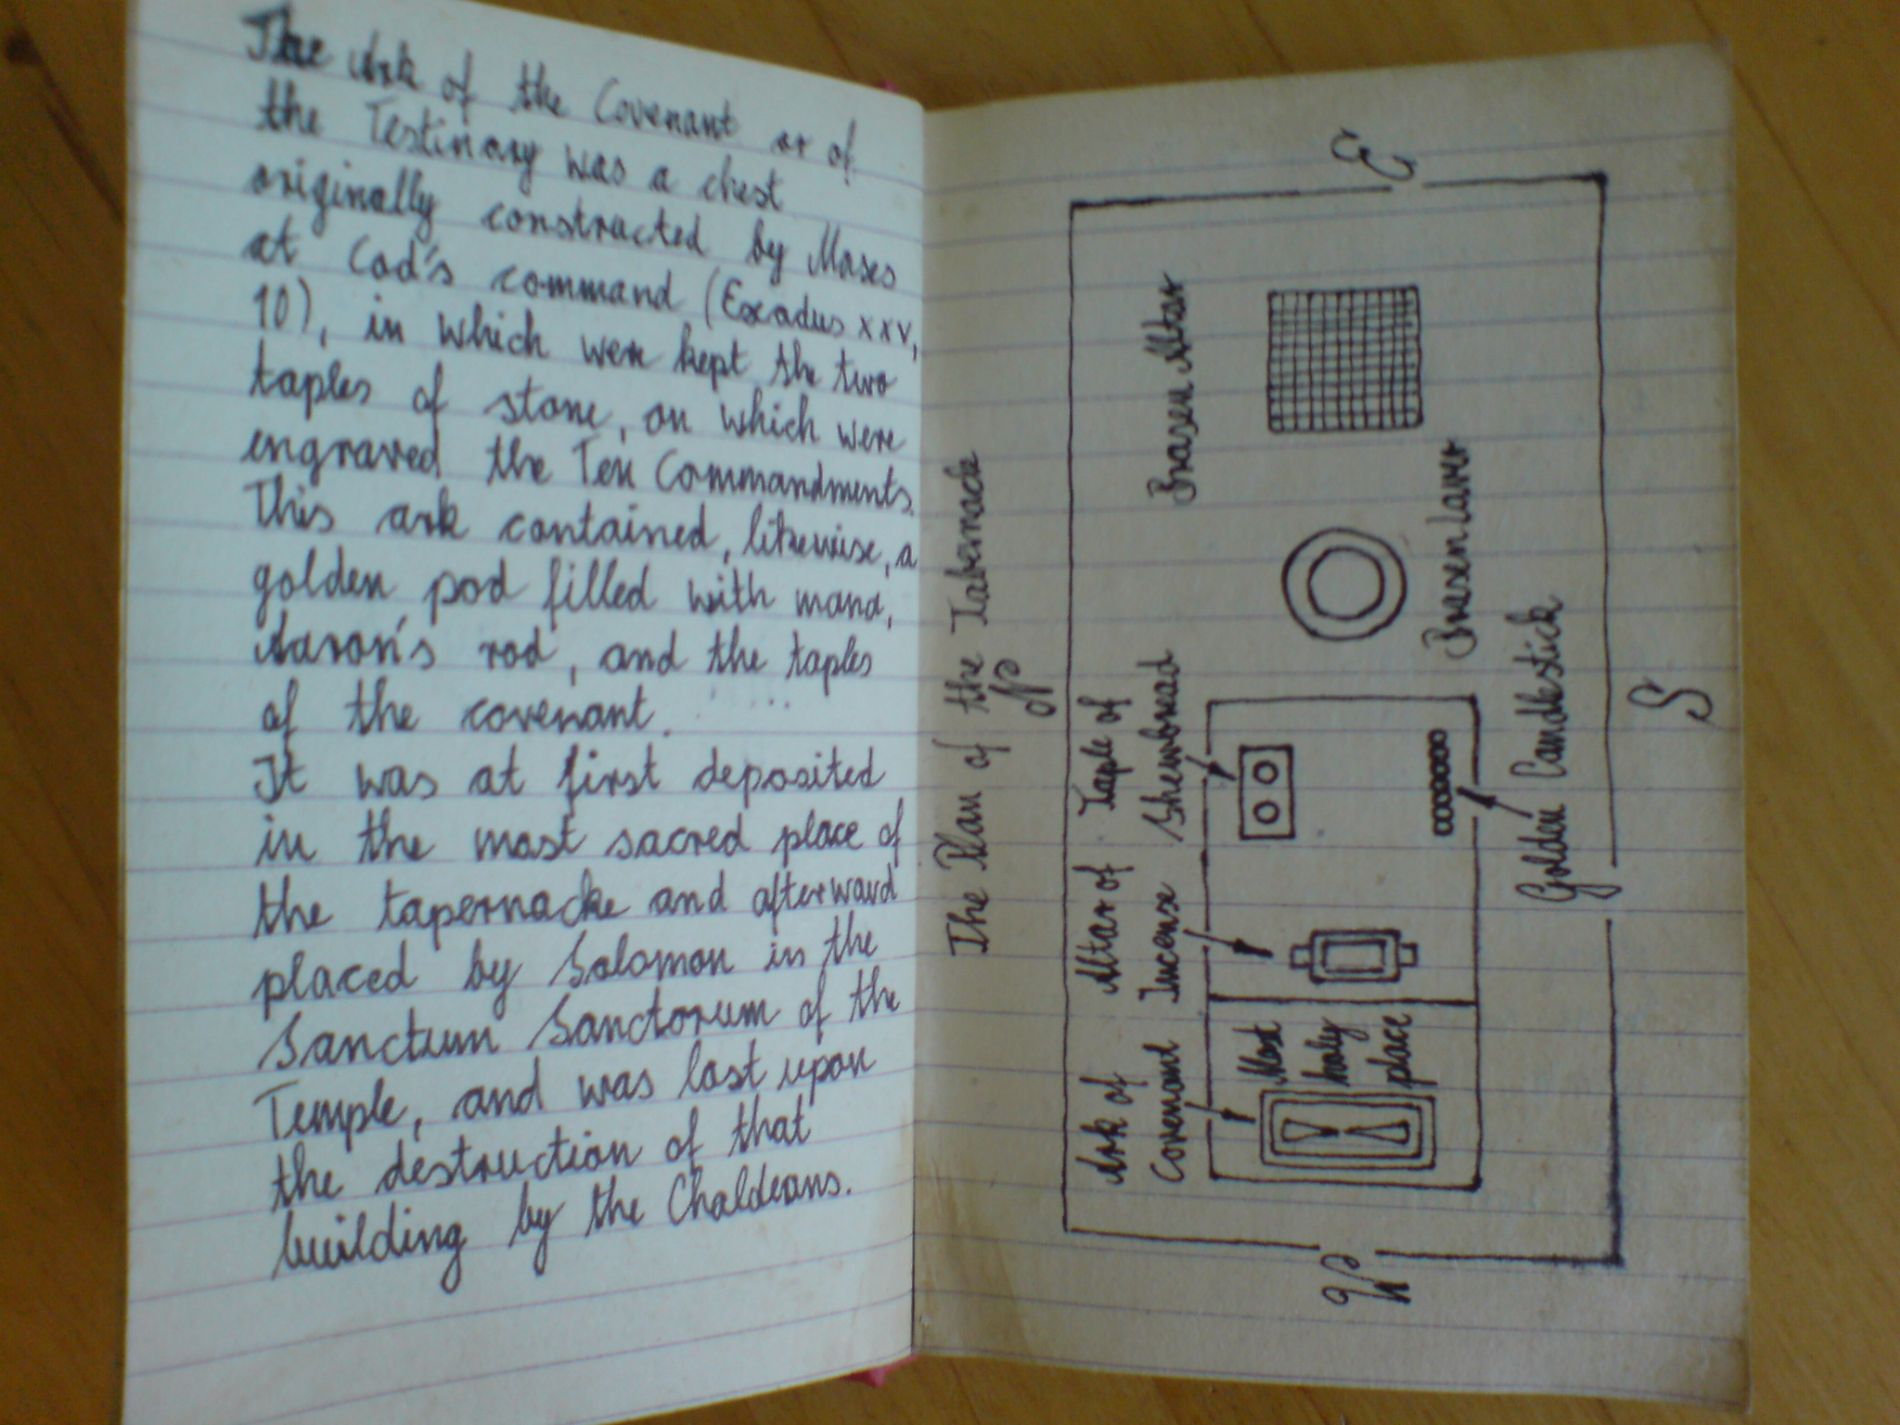 The Ark of the Covenant or of
the Testinony was a chest
originally constructed by Moses
at God's command (Exodus xxv,
10), in which were kept the two
taples of stone, on which were
engraved the Ten Commandments.
This ark contained, likewise, a
golden pod filled with mana,
Aaron's rod, and the taples
of the covenant.
It was at first deposited
in the most sacred place of
the tapernacle and afterward
placed by Solomon in the
Sanctum Sanctorum of the
Temple, and was lost upon
the destruction of that
building by the Chaldeans.
The Plan of the Tabernacle
N
Ark of
Covenant
Altar of
Incense
Taple of
Shewbread
Brasen Altar
W
Most
holy
place
E
Brasen Laver
Golden Candlestick
S